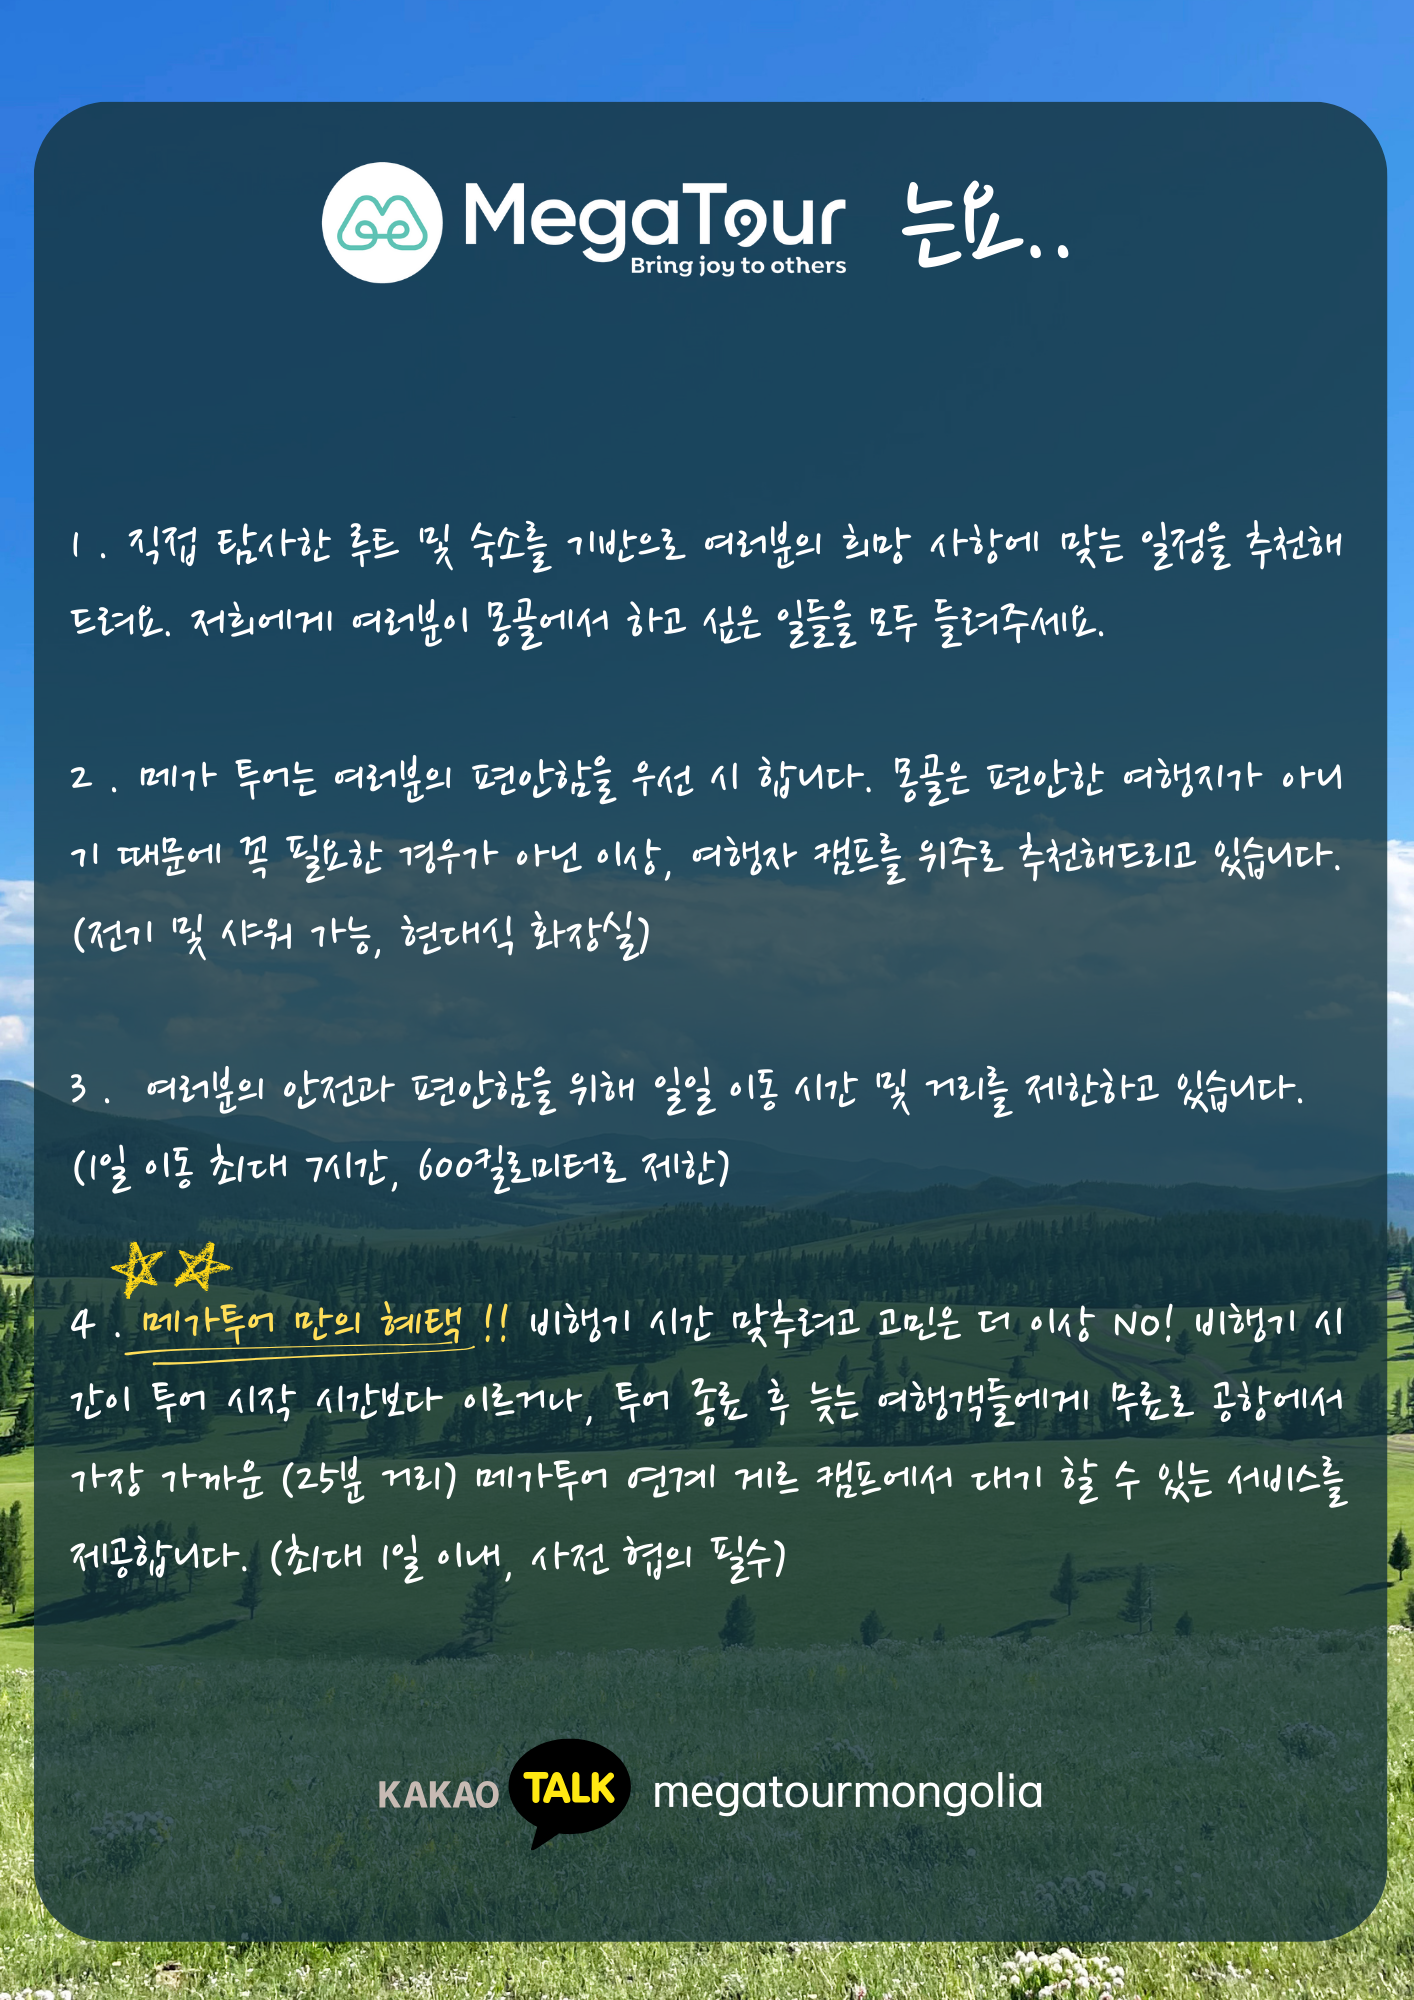 MegaTour 는요..
Bring joy to others
1 . 직접 탐사한 루트 및 숙소를 기반으로 여러분의 희망 사항에 맞는 일정을 추천해
드려요. 저희에게 여러분이 몽골에서 하고 싶은 일들을 모두 들려주세요.
2 . 메가 투어는 여러분의 편안함을 우선 시 합니다. 몽골은 편안한 여행지가 아니
기 때문에 꼭 필요한 경우가 아닌 이상, 여행자 캠프를 위주로 추천해드리고 있습니다.
(전기 및 샤워 가능, 현대식 화장실)
3 . 여러분의 안전과 편안함을 위해 일일 이동 시간 및 거리를 제한하고 있습니다.
(1일 이동 최대 7시간, 600킬로미터로 제한)
4 . 메가투어 만의 혜택 !! 비행기 시간 맞추려고 고민은 더 이상 NO! 비행기 시
간이 투어 시작 시간보다 이르거나, 투어 종료 후 늦는 여행객들에게 무료로 공항에서
가장 가까운 (25분 거리) 메가투어 연계 게르 캠프에서 대기 할 수 있는 서비스를
제공합니다. (최대 1일 이내, 사전 협의 필수)
KAKAO TALK megatourmongolia